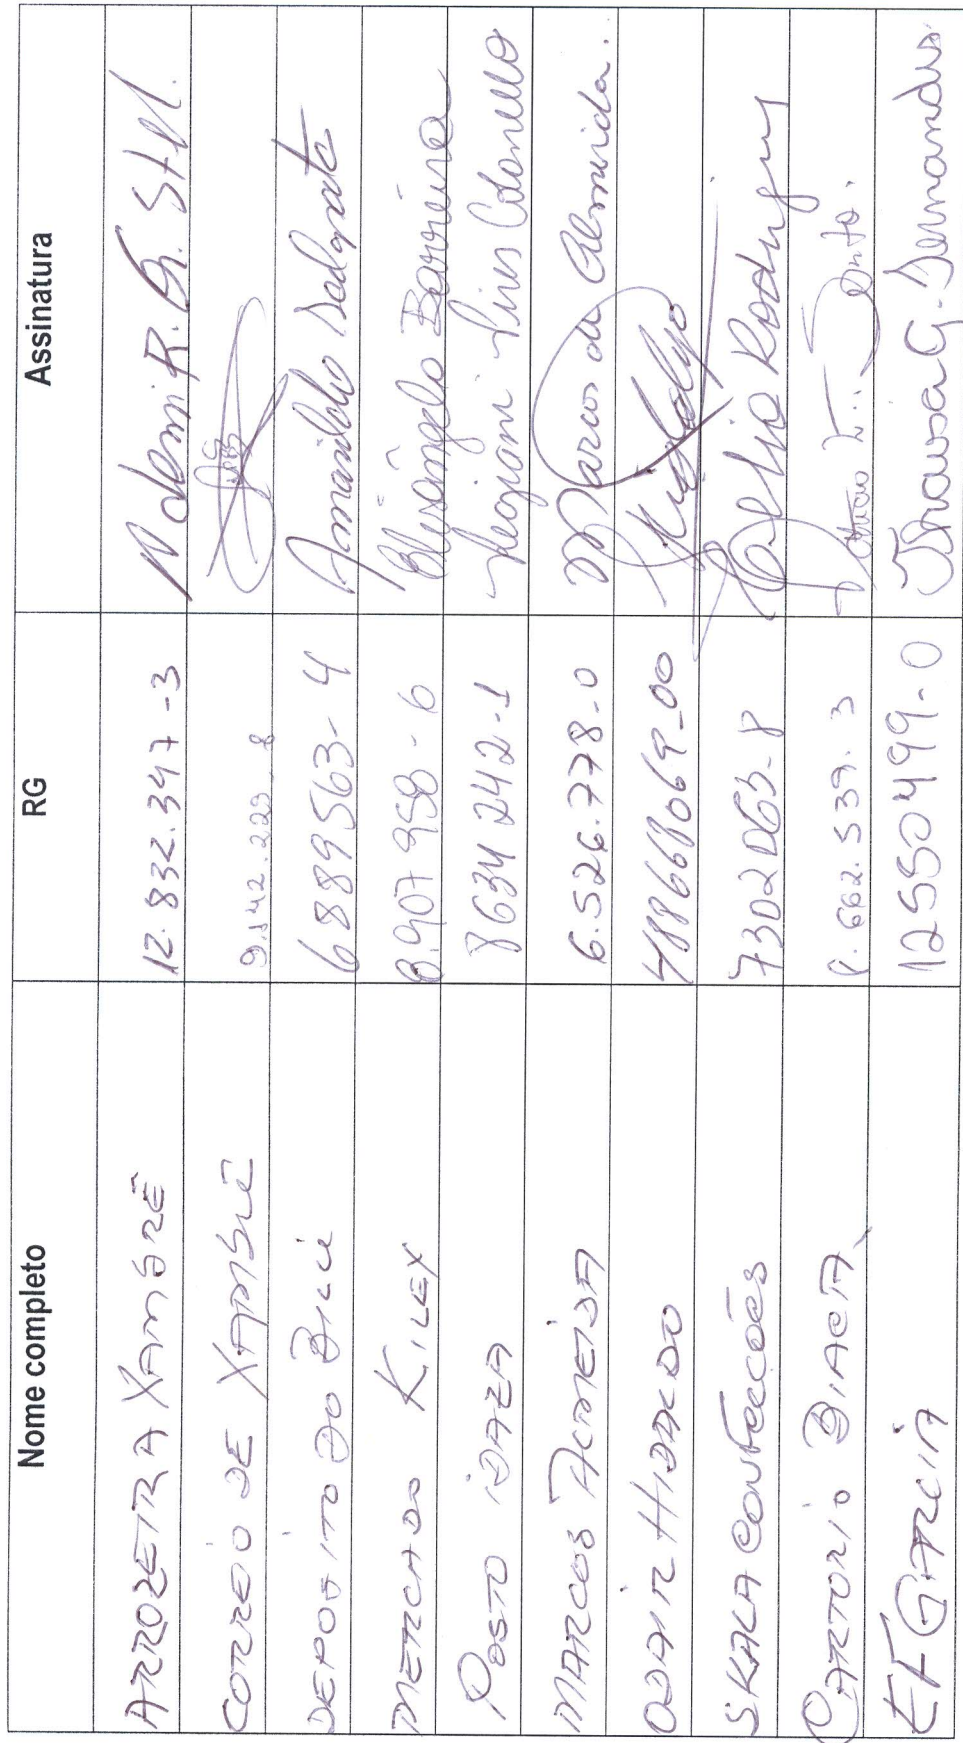 Nome completo RG Assinatura
ARROZEIRA XAMBRÊ 12.832.347-3 Ademir R. G.
CORREIO DE XAMBRÊ 9.142.229-8
DEPOSITO DO BILU 6889563-4 Amarildo
MERCADO KILEX 8.907958-6 Elisângela Barreira
POSTO IDAZA 8634242-1 Regiani Pires
MARCOS ALMEIDA 6.526.778-0 Marcos de Almeida.
ODAIR HIDALDO 488668069-00
SKALA CONFECCÕES 7302065-8 Celia Rodrigues
CARTORIO BIACA 8.662.539.3
EF GARCIA 12550499-0 G. Fernandes